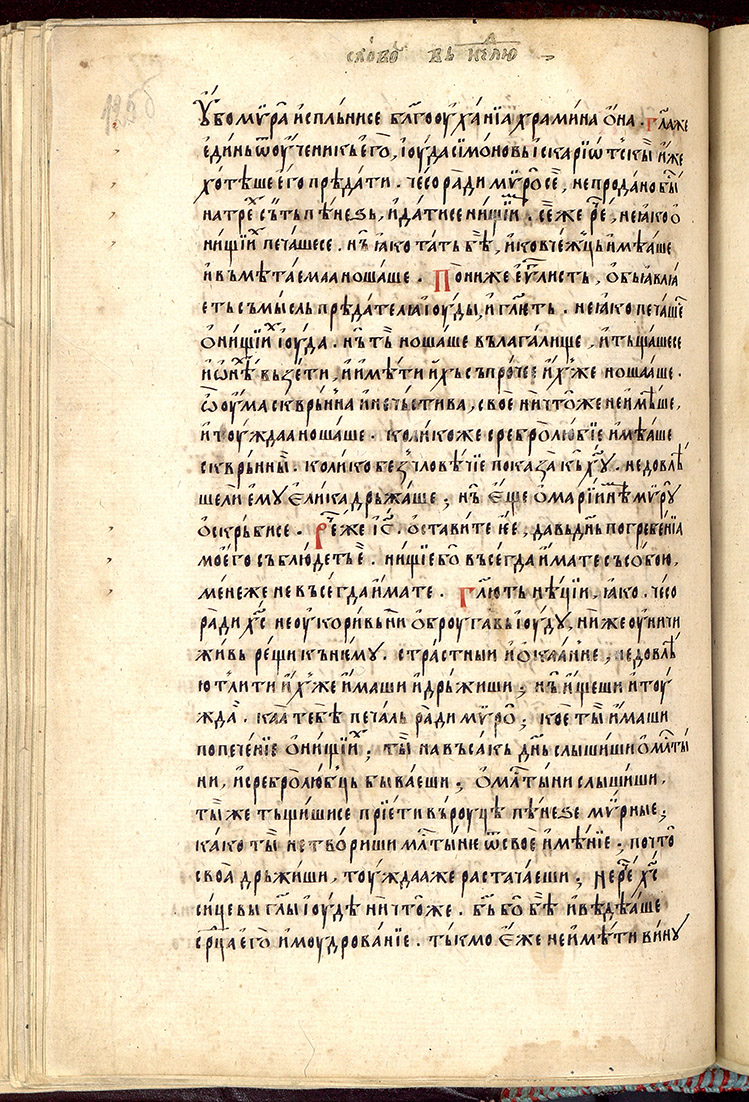 слово въ нєⷣлю
125б
Убо мѷра̀ и҆спль́нисе бл҃гооуха́нїа хра́мина ѻ҆́на . гл҃а же
є҆ди́нь ѿ оу҆чени́кь е҆го̀ , і҆оу́да сі́моновь і҆скарїѡ́тскы̏ и҆́же
хо́тѣше є҆го̀ прѣда́ти . чесо̀ ра́ди мѷ́ро сѐ , непродано бы́
на трє́х съ́ть пѣ́незь , и҆да́тисе ни́щїим . се́же речѐ , не ꙗ҆́ко ѡ҆
ни́щїих печа́шесе . нь̏ ꙗ҆́ко та́ть бѣ̀ , и҆ ковче́жць и҆мѣ́аше
и҆ въмѣта́емаа ноша́ше . Пони́же є҆ѵⷢлисть , ѻ҆бьꙗвлꙗ́
еть съ́мысль прѣда́телꙗ і҆оу́ды , и҆ гл҃ѥть . не ꙗ҆́ко печа́шесе
ѡ҆ ни́щїих і҆оу́да . нь̏ тъ̏ ноша́ше влага́лище , и҆ тъща́шесе
и҆ ѡ҆нѣ́х въ́зети , и҆ и҆мѣ́ти и҆́хь съ про́чее и҆́хже ноша́аше .
Ѽ оу҆ма скврь́нна и҆ нечь́стива , своѐ ничто́же не и҆мѣ́ше ,
и҆ тоу́ждаа ноша́ше . коли́ко же сребролю́бїе и҆мѣ́аше
скврь́нныи . коли́ко безчловѣ́чїе показа̀ къ хⷭ҇у . не довлѣ́
ше ли е҆му є҆ли́ка дрьжа́ше ; нь̏ є҆́ще ѡ҆ марі́инѣ мѷ́рꙋ
ѻ҆скрь́бисе . Рече́же і҆с҃ . ѻ҆ста́вите ю҆̀ е , да вь дн҃ь погребе́нїа
моего съблюде́ть ѐ . ни́щїе бо̀ въсегда̀ и҆́мате съ собою ,
мене́же не въсегда̀ и҆́мате . Гл҃ють нѣ́ции , ꙗ҆́ко . чесо̀
ра́ди хⷭ҇с не оу҆кори́вь ни ѻ҆броуга́вь і҆оу́ду , ни́же оу҆ничи
жи́вь рѐщи къ нѥ́му . стра́стныи и҆ ѻ҆каа́нне , не довлѣ́
ю́т ли ти и҆́хже и҆́маши и҆ дрьжи́ши ; нь̏ и҆́щеши и҆ тоу́
жда̀ . каа̀ тебѣ̀ печа́ль ра́ди мѷ́ро ; коѐ ты̀ и҆́маши
попече́нїе ѡ҆ ни́щїих ; ты̀ на въсакь дн҃ь слы́шиши ѡ҆ млⷭ҇ты
ни , и҆ сребролю́бць быва́еши ; ѡ҆ млⷭ҇ты́ни слы́шиши ,
ты́же тъщи́шисе прїе́ти въ роу́цѣ пѣ́незе мѷ́рные ;
ка́ко ты̀ не твори́ши млⷭ҇ты́ню ѿ своѐ и҆мѣ́нїе ; по что̀
своа̀ дрьжи́ши , тоу́ждаа же растача́еши ; Не рече́ хⷭ҇с
сі́цевы гл҃ы і҆оу́дѣ ничто́же . бг҃ь бо̀ бѣ̀ и҆ вѣ́дѣаше
срⷣца е҆го̀ и҆ моудрова́нїе . ты́кмо є҆́же не и҆мѣ́ти ви́ну